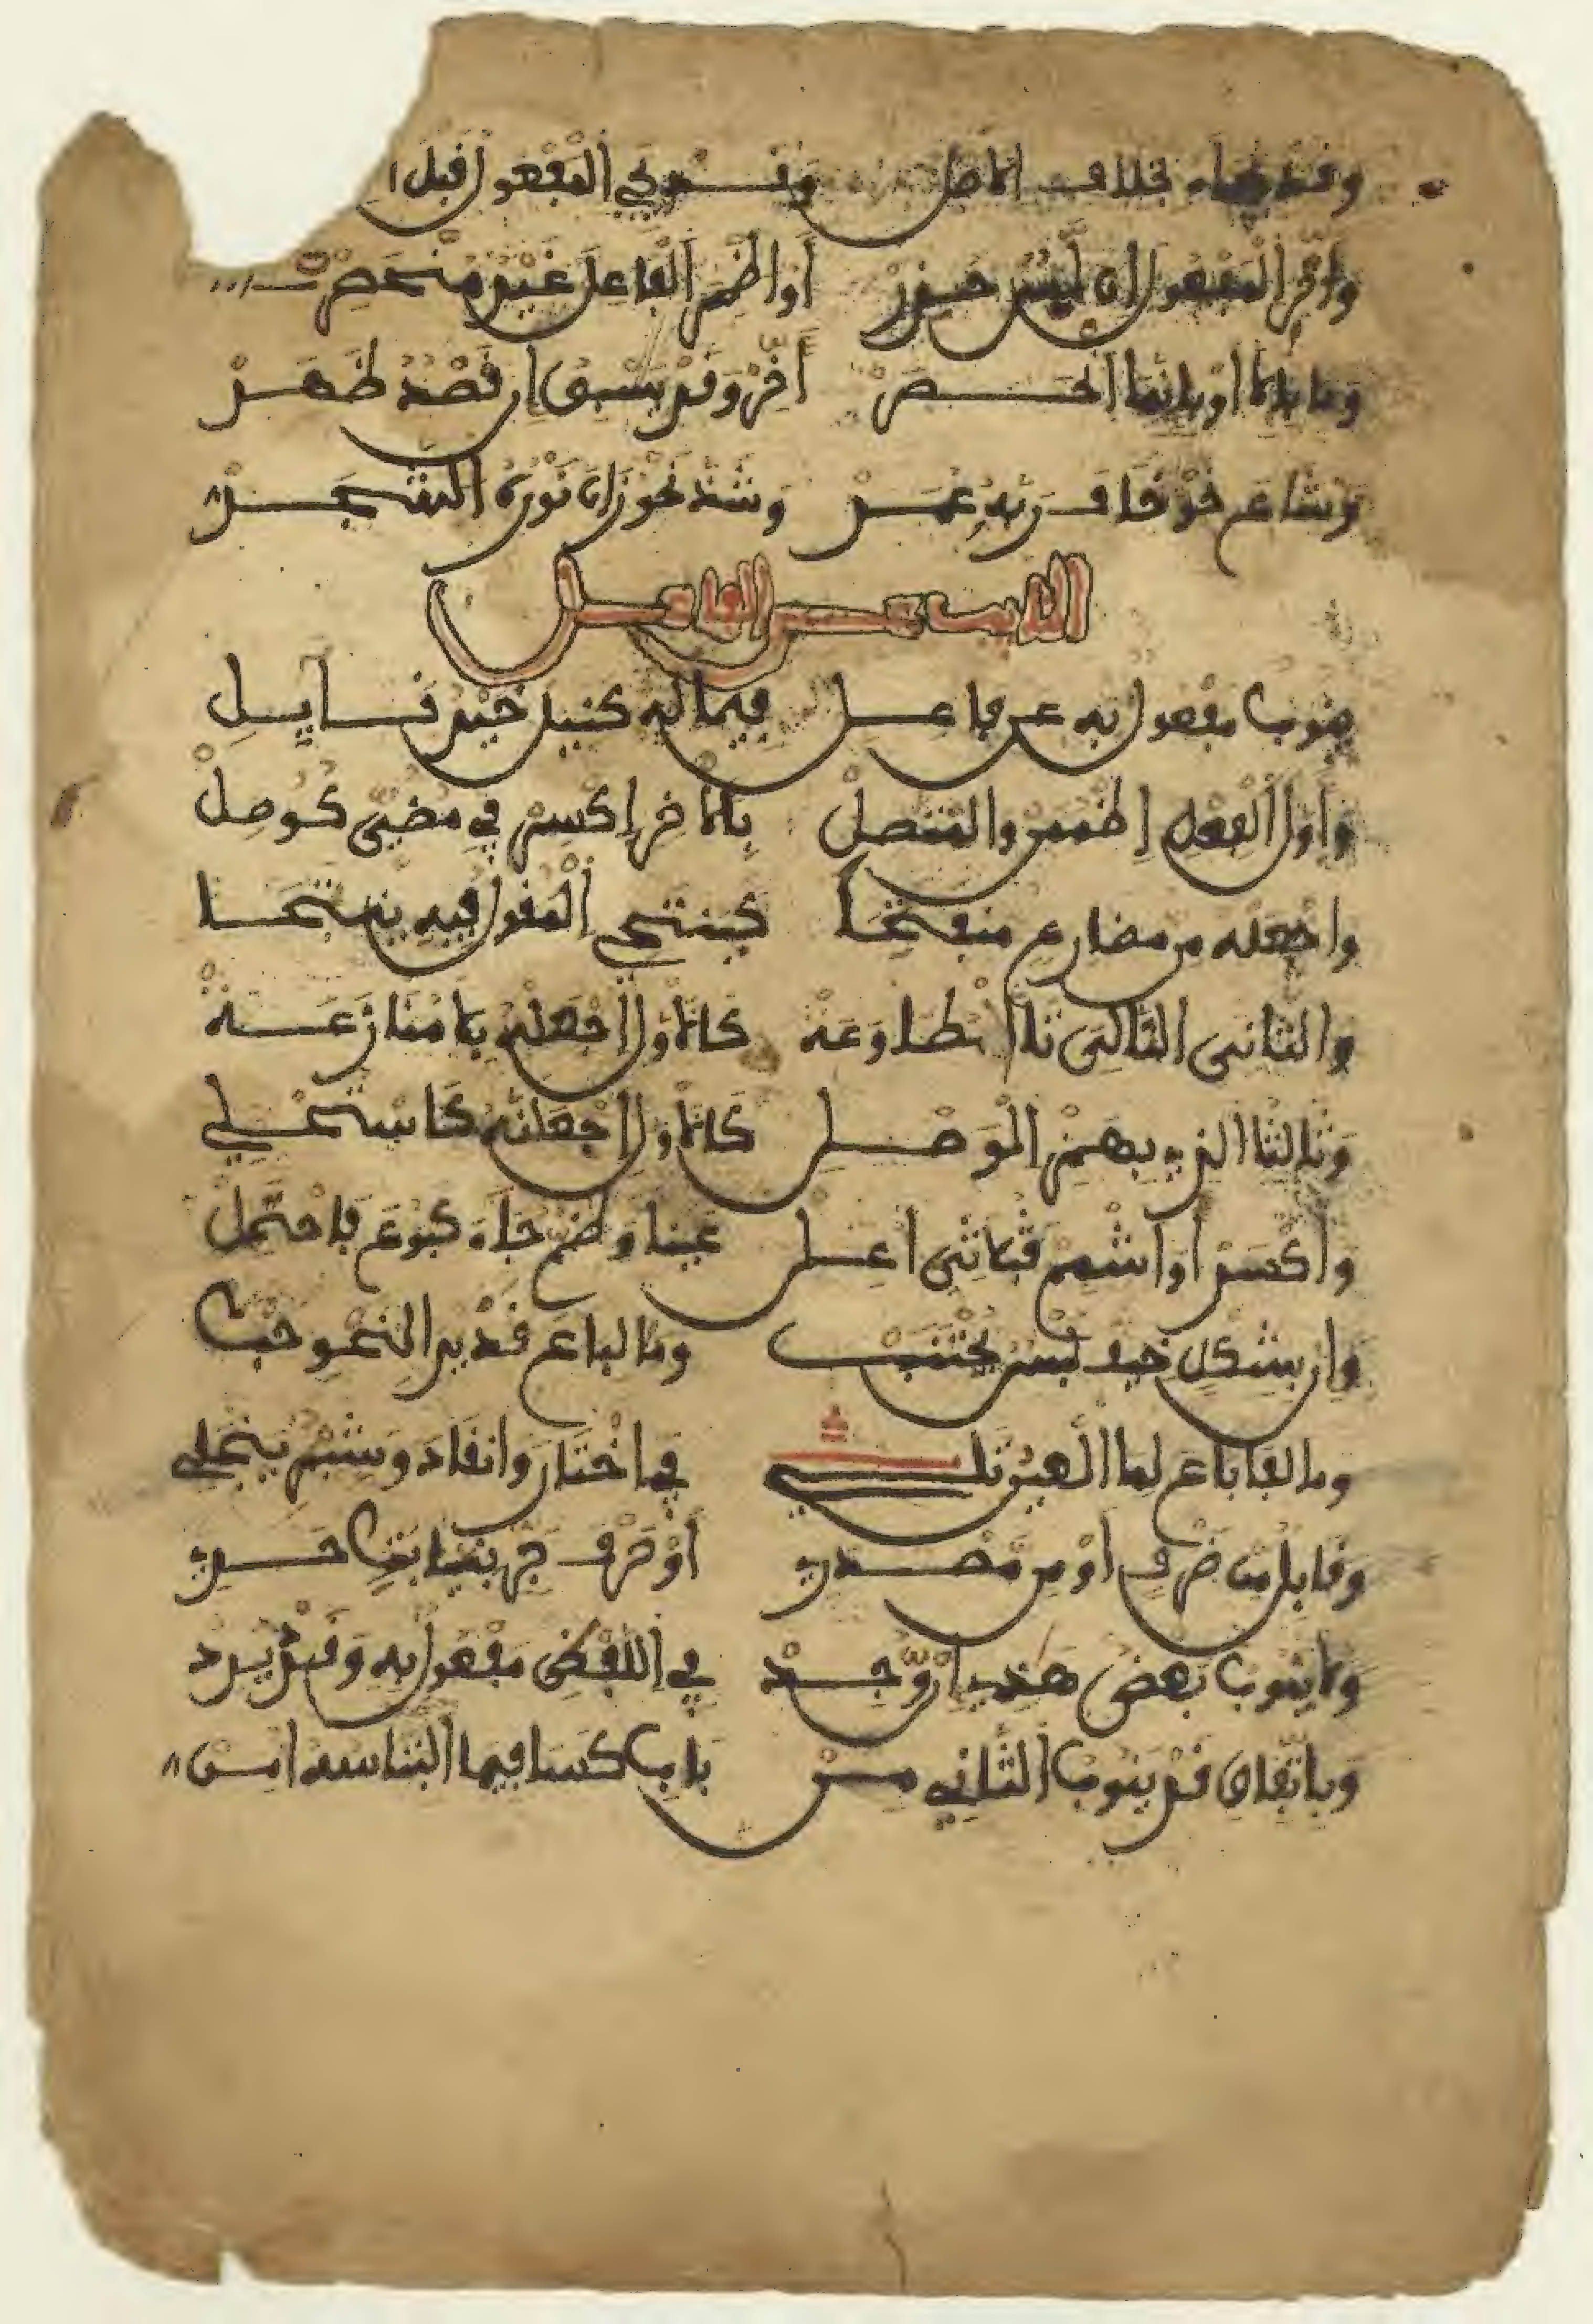 وقد يجاء بخلاف الاصل وقد يجي المفعول قبل ا
واخر المفعول ان لبس حذر او اضمر الفاعل غير منحصر
وما بالا او بانما انحصر اخر وقد يسبق ان قصد ظهر
وشاع نحو خاف ربه عمر وشذ نحو زان نوره الشجر
النايب عن الفاعل
ينوب مفعول به عن فاعل فيما له كنيل خير نايل
واول الفعل اضممن والمتصل بالاخر اكسر في مضي كوصل
واجعله من مضارع منفتحا كينتحي المقول فيه ينتحا
والثاني التالي تا المطاوعه كالاول اجعله بلا منازعه
وثالث الذي بهمز الوصل كالاول اجعلنه كاستحلي
واكسر او اشمم فا ثلاثي اعل عينا وضم جاء كبوع فاحتمل
وان بشكل خيف لبس يجتنب وما لباع قد يرا لنحو حب
وما لفا باع لما العين تلي في اختار وانقاد وشبه ينجلي
وقابل من ظرف او من مصدر او حرف جر بنيابة حري
ولا ينوب بعض هذي ان وجد في اللفظ مفعول به وقد يرد
وباتفاق قد ينوب الثاني من باب كسا فيما التباسه امن